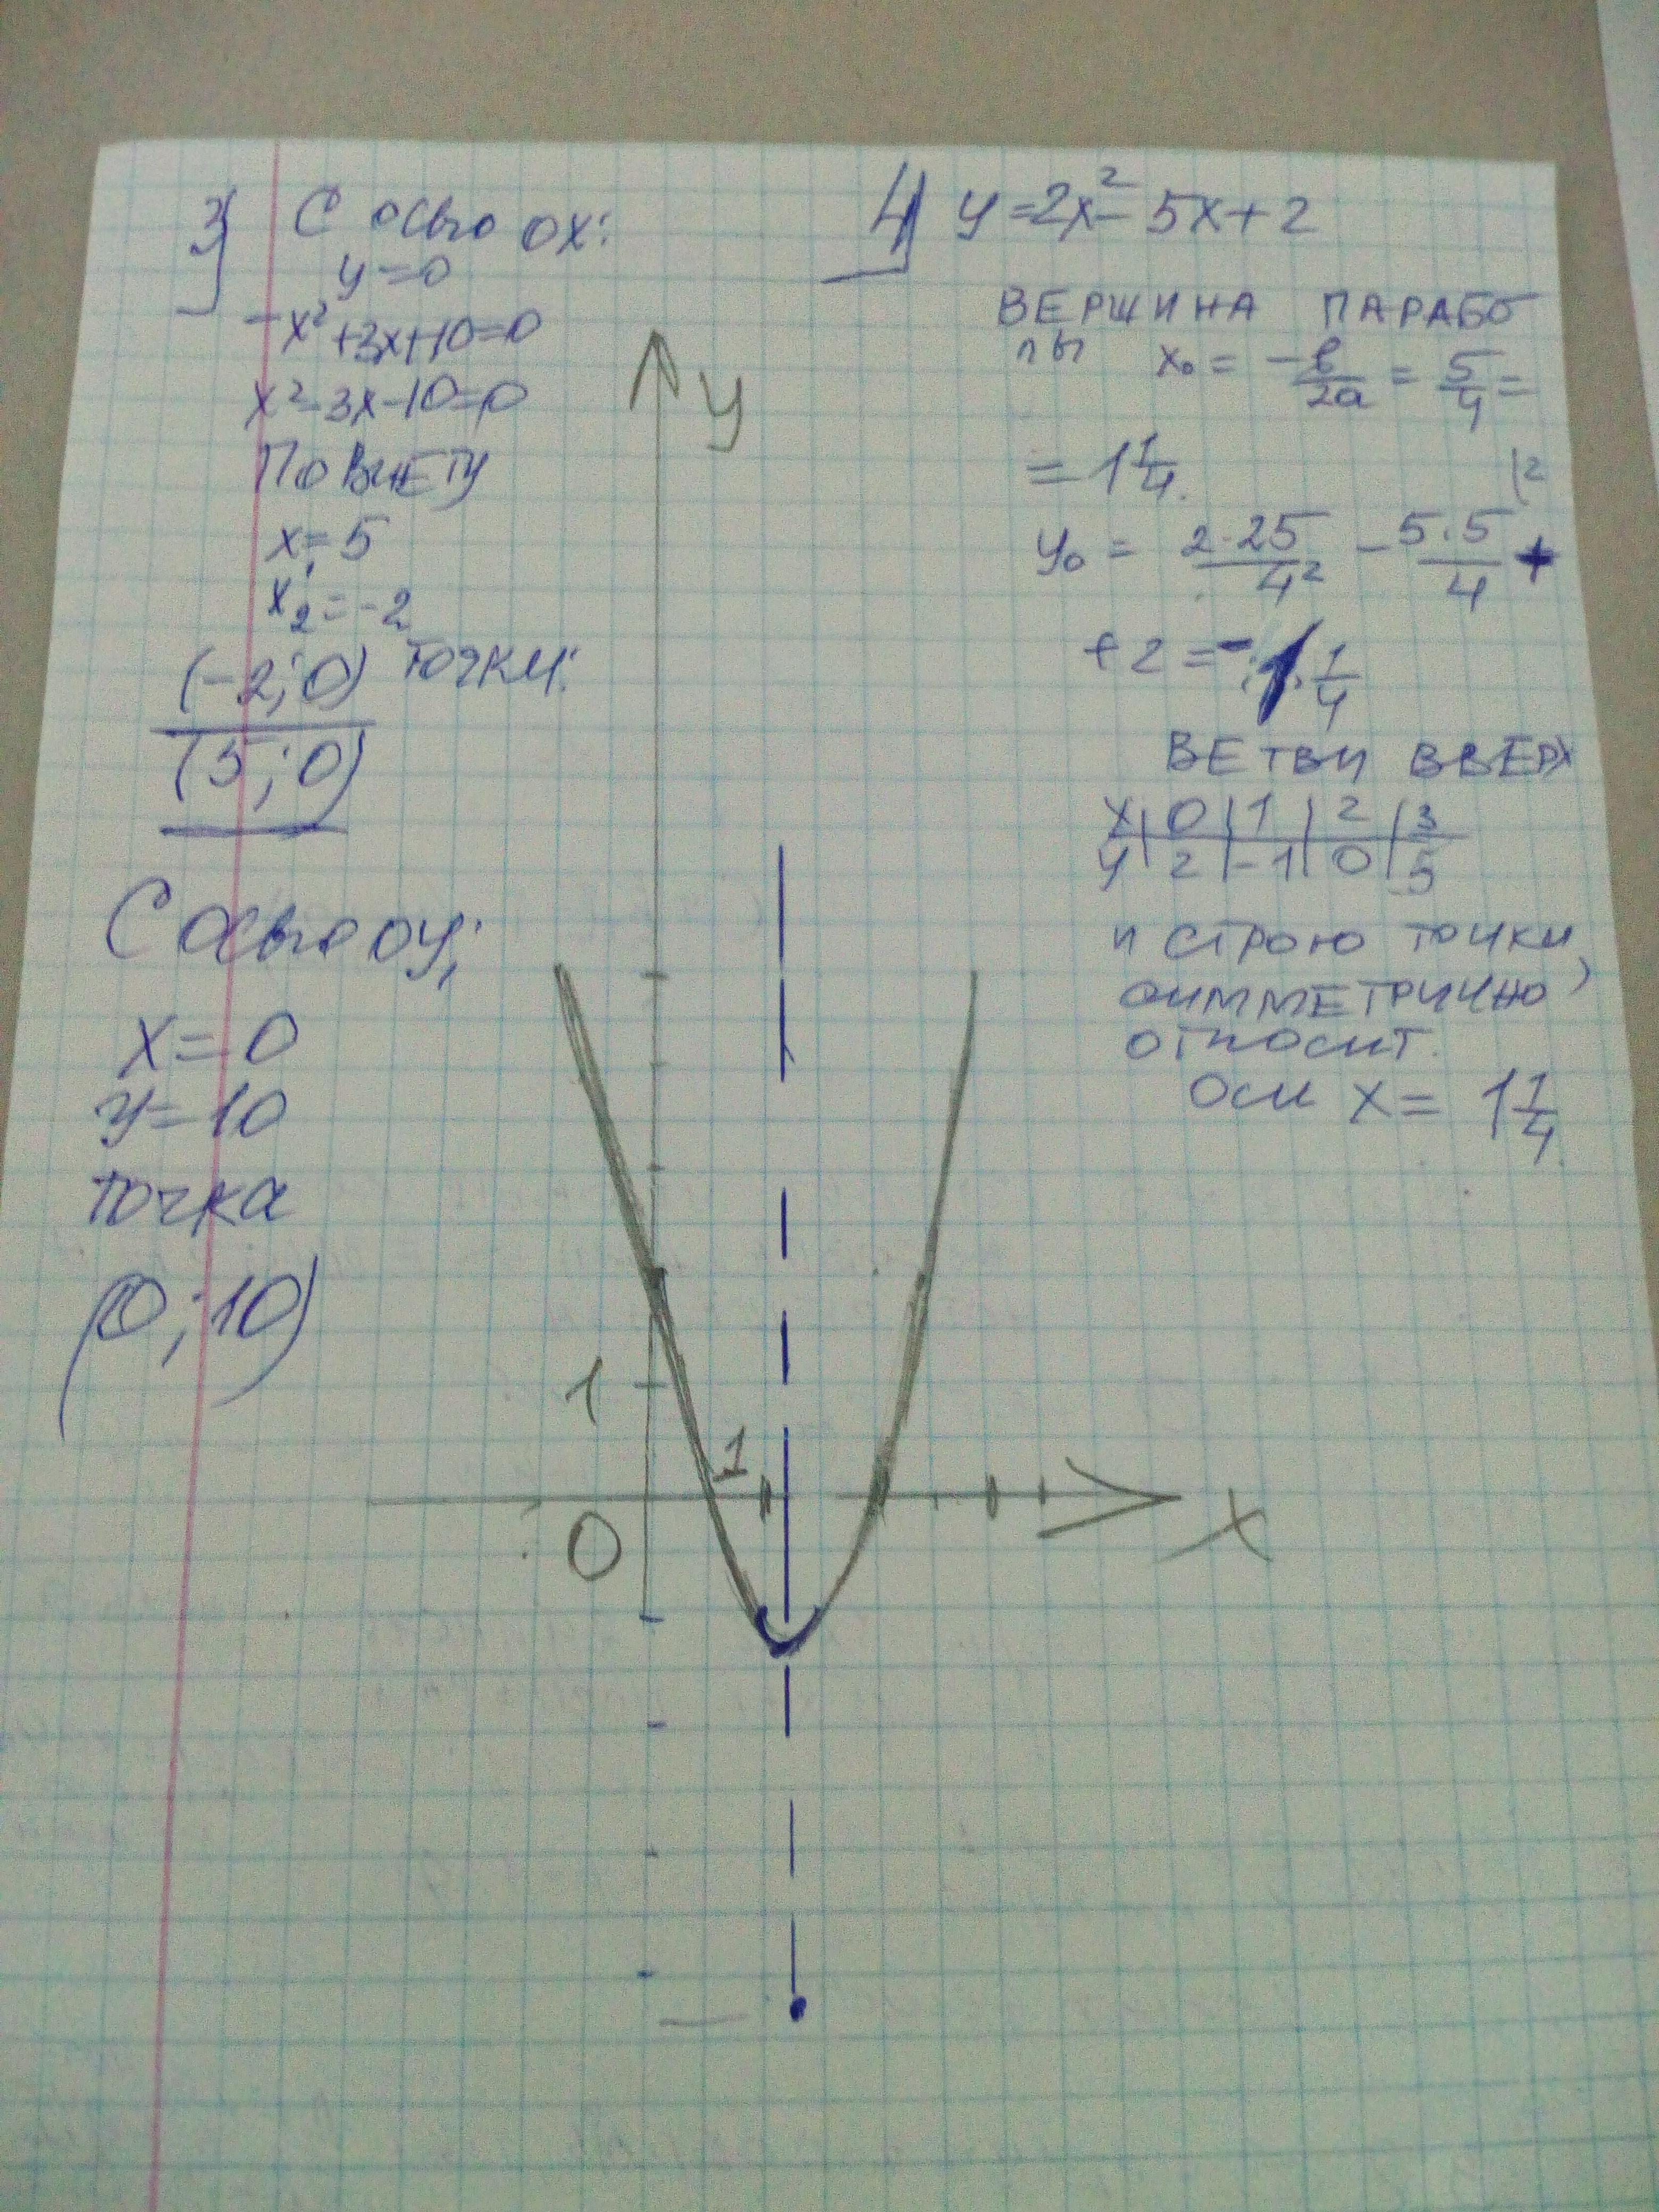 3) С осью ох:
у=0
-x²+3x+10=0
x²-3x-10=0
По Виету
x₁=5
x₂=-2
(-2;0) точки:
(5;0)
С осью оу:
x=0
y=10
точка
(0;10)
4) y=2x²-5x+2
ВЕРШИНА ПАРАБО
ЛЫ x₀ = -b/2a = 5/4 =
= 1 1/4.
y₀ = 2·25/4² - 5·5/4 +
+2 = -1 1/4
ВЕТВИ ВВЕРХ
x | 0 | 1 | 2 | 3
y | 2 | -1 | 0 | 5
и строю точки,
симметрично
относит.
оси x = 1 1/4
y
1
1
0
x